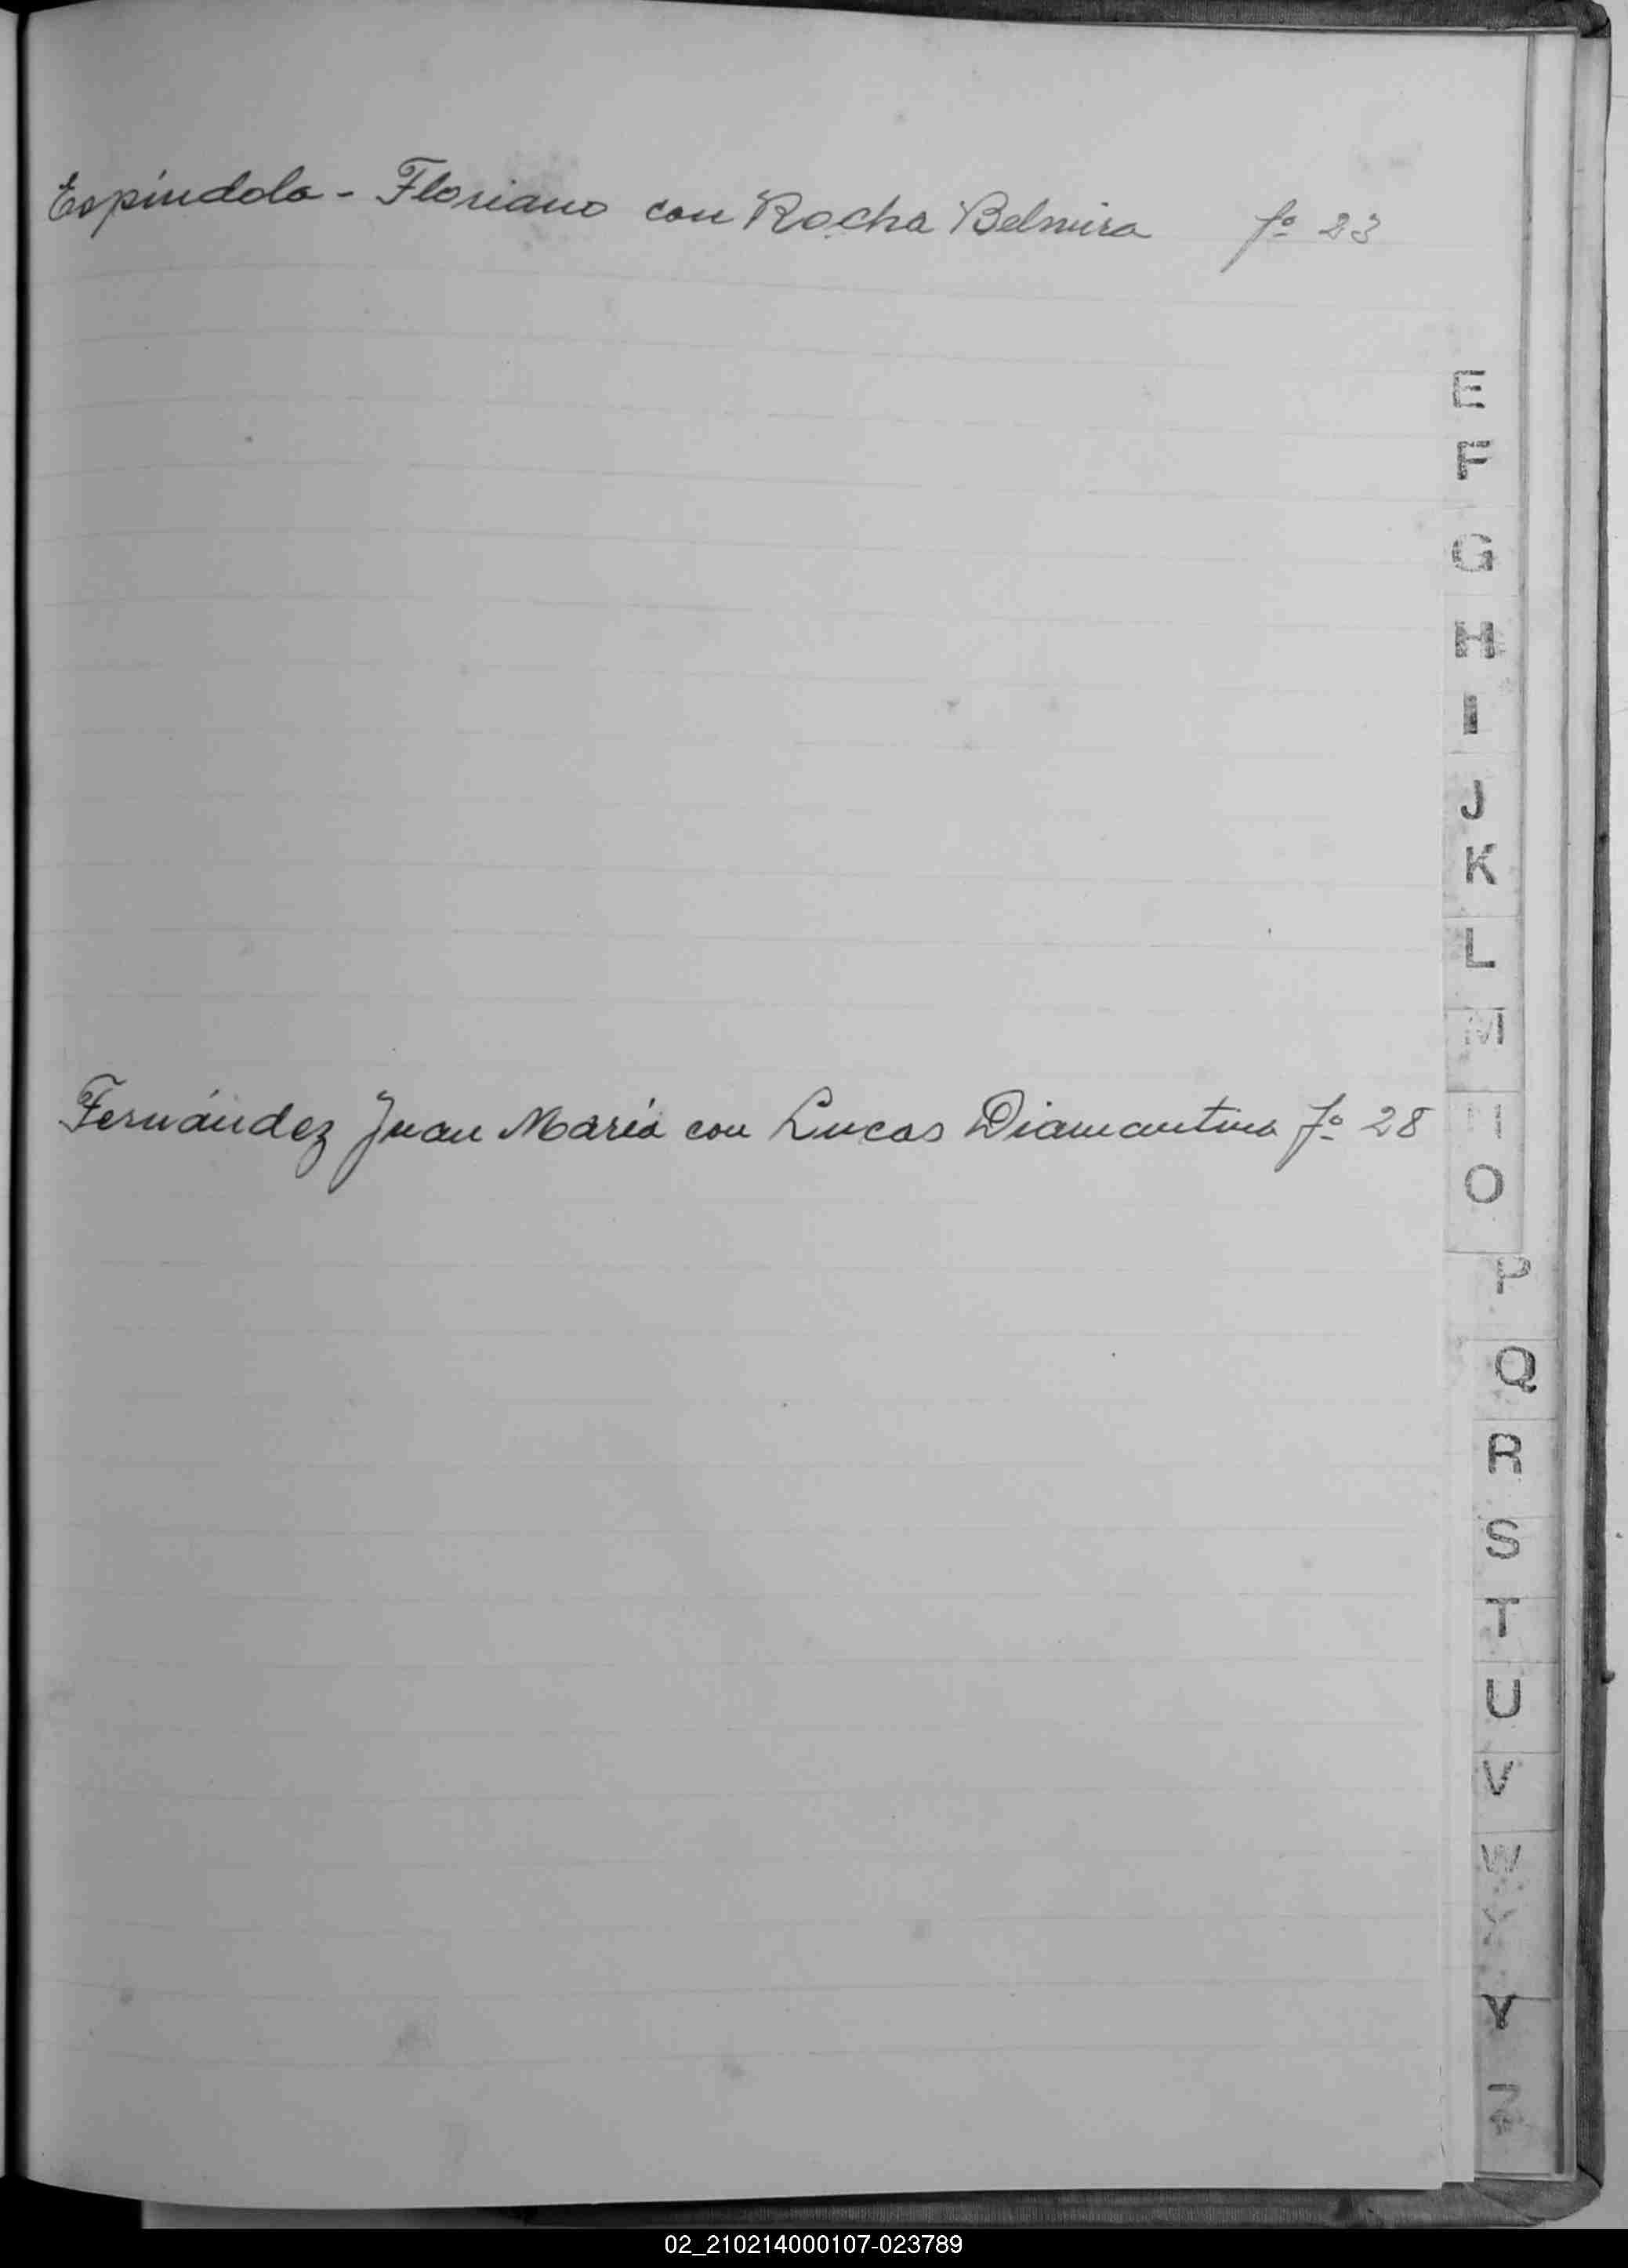 Espíndola - Floriano con Rocha Belmira fº 23
E
F
G
H
I
J
K
L
M
Fernández Juan María con Lucas Diamantina Fº 28
N
O
P
Q
R
S
T
U
V
W
X
Y
Z
02_210214000107-023789